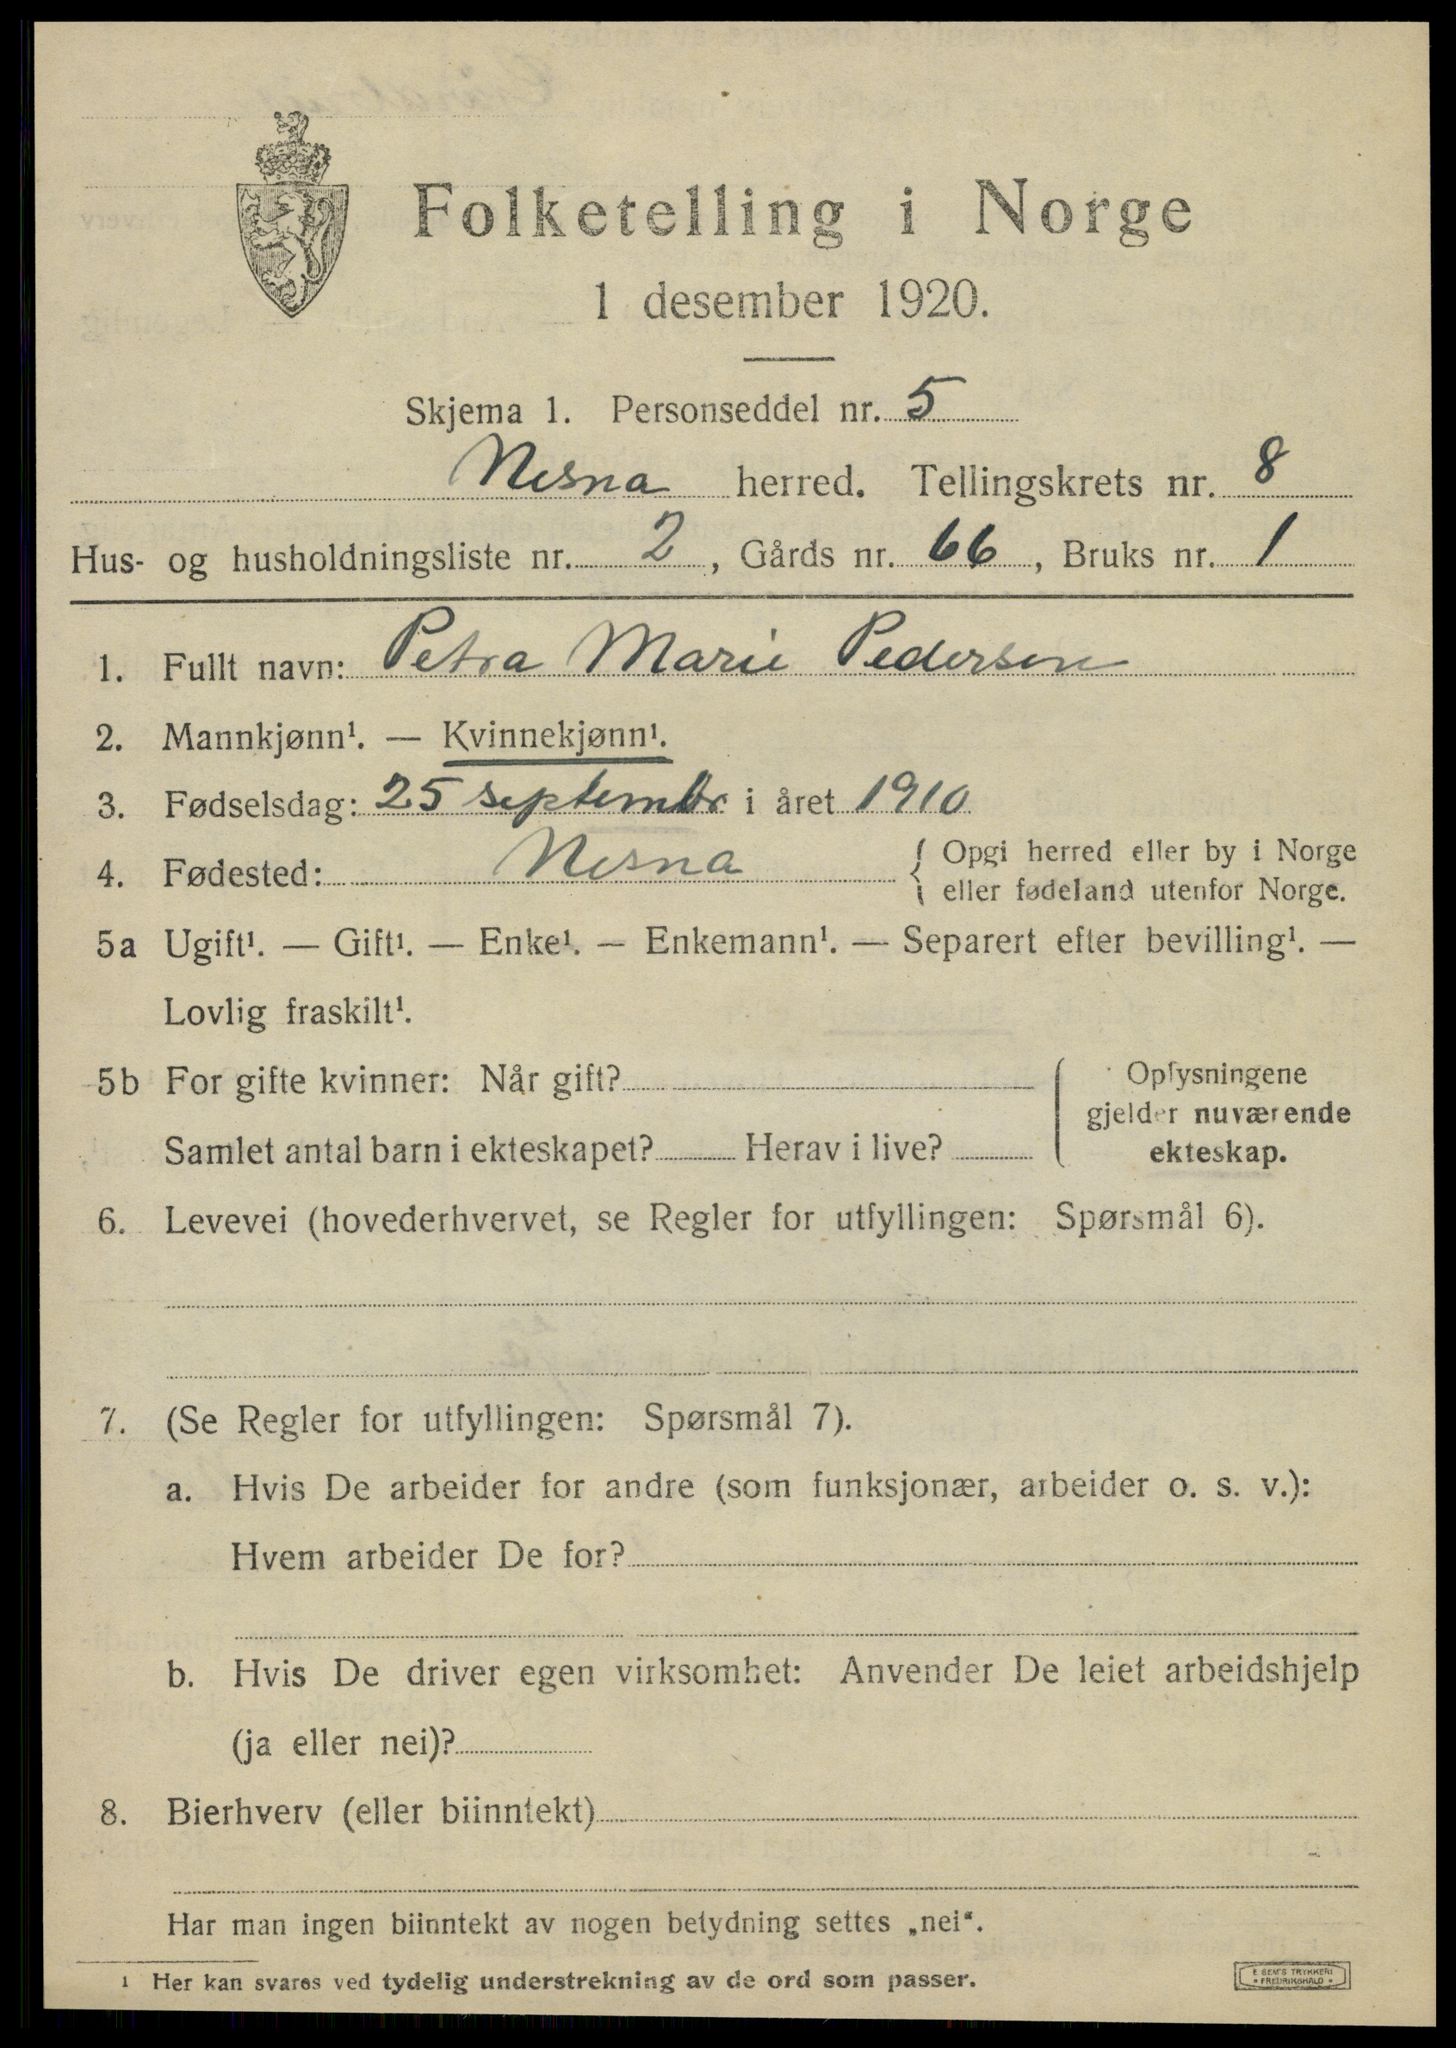 Folketelling i Norge
1 desember 1920.
Skjema 1. Personseddel nr. 5
Nesna herred. Tellingskrets nr. 8
Hus- og husholdningsliste nr. 2, Gårds nr. 66, Bruks nr. 1
1. Fullt navn: Petra Marie Pedersen
2. Mannkjønn¹. — Kvinnekjønn¹.
3. Fødselsdag: 25 septembr i året 1910
4. Fødested: Nesna { Opgi herred eller by i Norge
eller fødeland utenfor Norge.
5a Ugift¹. — Gift¹. — Enke¹. — Enkemann¹. — Separert efter bevilling¹. —
Lovlig fraskilt¹.
5b For gifte kvinner: Når gift?
Samlet antal barn i ekteskapet? Herav i live?
Oplysningene
gjelder nuværende
ekteskap.
6. Levevei (hovederhvervet, se Regler for utfyllingen: Spørsmål 6).
7. (Se Regler for utfyllingen: Spørsmål 7).
a. Hvis De arbeider for andre (som funksjonær, arbeider o. s. v.):
Hvem arbeider De for?
b. Hvis De driver egen virksomhet: Anvender De leiet arbeidshjelp
(ja eller nei)?
8. Bierhverv (eller biinntekt)
Har man ingen biinntekt av nogen betydning settes „nei“.
¹ Her kan svares ved tydelig understrekning av de ord som passer.
E SEM'S TRYKKERI
FREDRIKSHALD